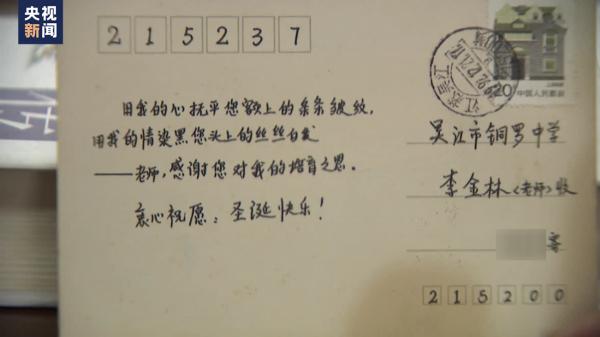 央视
新闻
215237
20 中国人民邮政
用我的心抚平您额上的条条皱纹，
用我的情染黑您头上的丝丝白发
——老师，感谢您对我的培育之恩。
衷心祝愿：圣诞快乐！
吴江市铜罗中学
李金林（老师）收
寄
215200